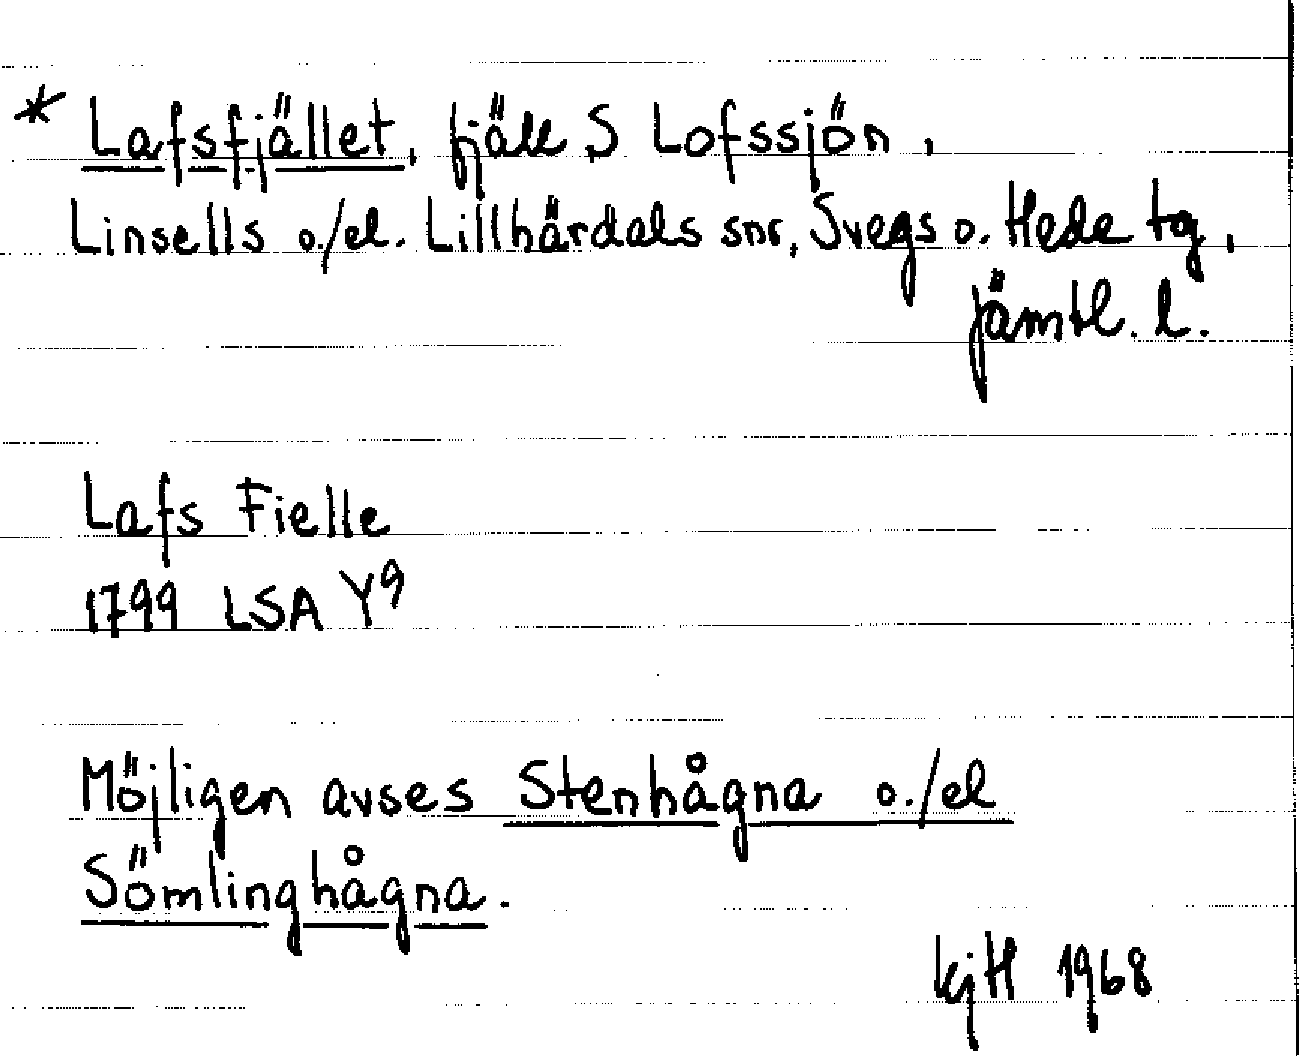 * Lafsfjället, fjäll S Lofssjön,
Linsells o./el. Lillhärdals snr, Svegs o. Hede tg,
Jämtl. l.
Lafs Fielle
1799 LSA Y9
Möjligen avses Stenhågna o./el
Sömlinghågna.
KjH 1968